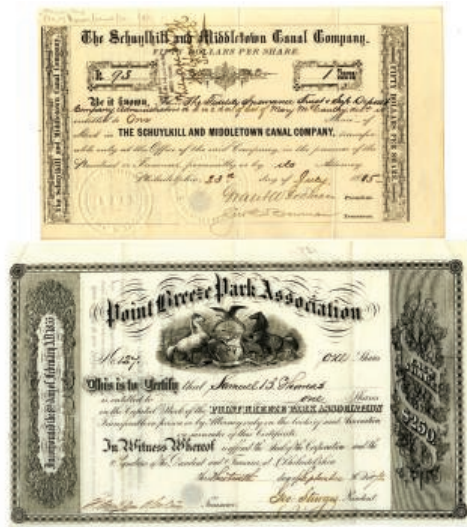 The Schuylkill and Middletown Canal Company.
FIFTY DOLLARS PER SHARE.
No. 98
1 Shares
Be it known, That The Fidelity Insurance Trust & Safe Deposit
Company Administrators of Mary McCauthy
entitled to One Share of
Stock in THE SCHUYLKILL AND MIDDLETOWN CANAL COMPANY, transfer-
able only at the Office of the said Company, in the presence of the
President or Treasurer, personally or by its Attorney
Philadelphia, 23rd day of July 1885
President.
Treasurer.
The Schuylkill and Middletown Canal Company.
FIFTY DOLLARS PER SHARE.
Point Breeze Park Association
No. 127
one Share
This is to Certify that Samuel B. Thomas
is entitled to one Shares
in the Capital Stock of the POINT BREEZE PARK ASSOCIATION
Transferable in person or by Attorney only on the books of said Association
on surrender of this Certificate.
In Witness Whereof
the Seal of the Corporation and the
Signatures of the President and Treasurer at Philadelphia
day of September
Treasurer
Geo. Sturges President
Incorporated the day of February A.D. 1855
$250